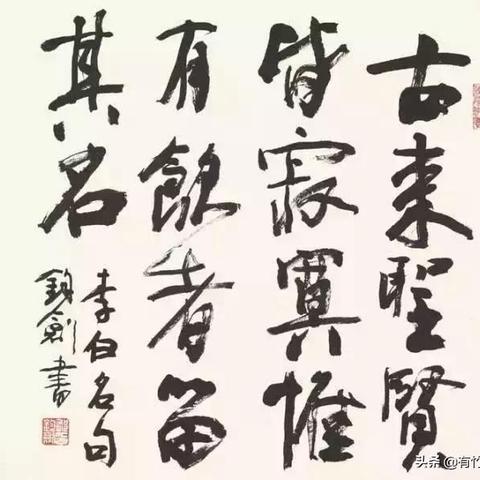 古来聖賢
皆寂寞惟
有飲者留
其名
李白名句
鈞劍書
头条 @有竹